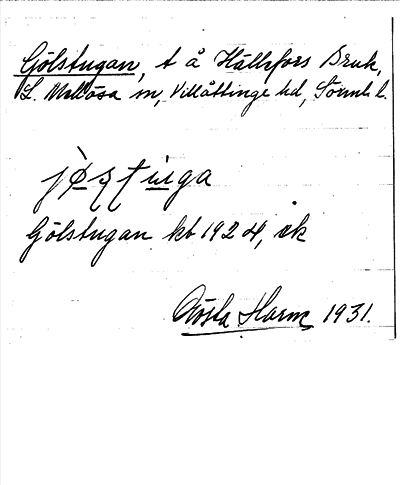 Gölstugan, t å Hällefors Bruk,
L. Mellösa sn, Villåttinge hd, Sörml. l.
Gölstugan kb 1924, ek
Gösta Harm 1931.